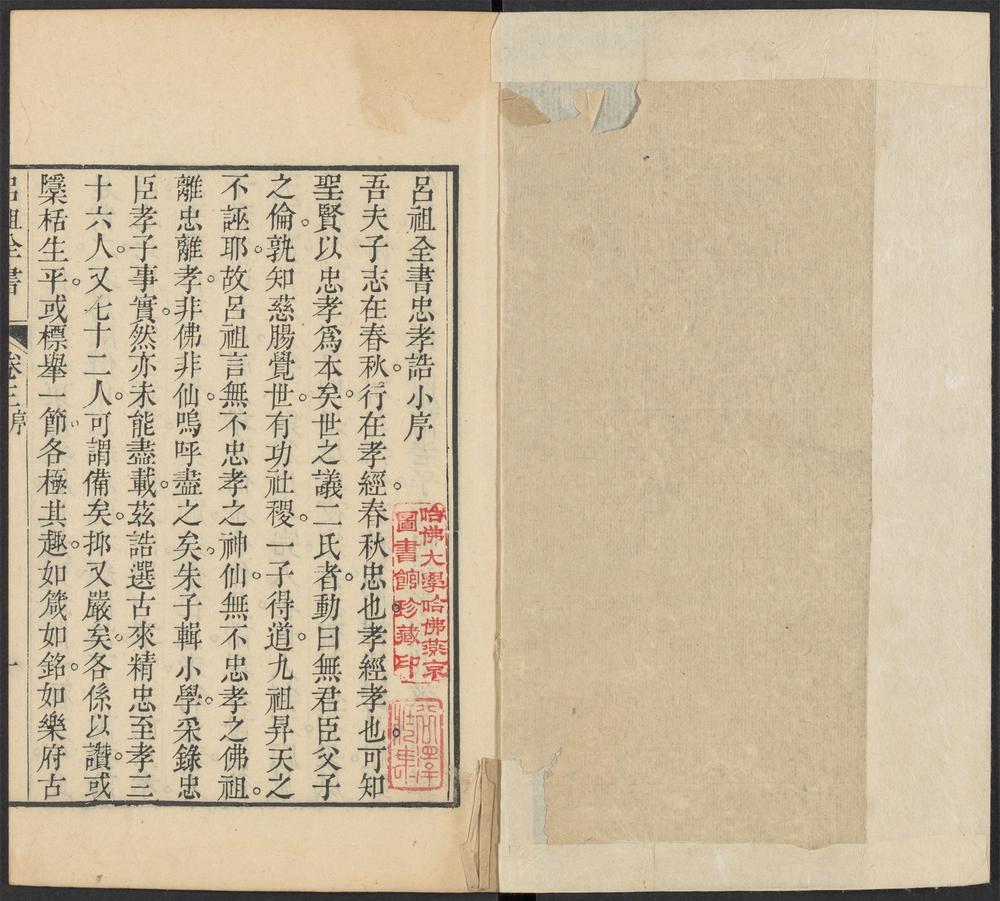 呂祖全書忠孝誥小序
吾夫子志在春秋。行在孝經。春秋忠也。孝經孝也。可知
聖賢以忠孝爲本矣。世之議二氏者。動曰無君臣父子
之倫。孰知慈腸覺世。有功社稷。一子得道。九祖昇天之
不誣耶。故呂祖言無不忠孝之神仙。無不忠孝之佛祖。
離忠離孝。非佛非仙。嗚呼盡之矣。朱子輯小學。采錄忠
臣孝子事實。然亦未能盡載。茲誥選古來精忠至孝三
十六人。又七十二人。可謂備矣。抑又嚴矣。各係以讚。或
檃栝生平。或標舉一節。各極其趣。如箴如銘。如樂府古
呂祖全書
卷三序
一
哈佛大學哈佛燕京
圖書館珍藏印